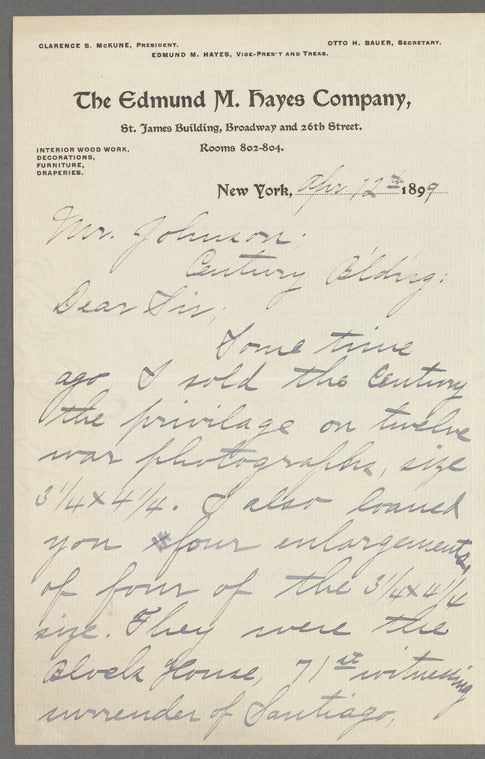 CLARENCE S. McKUNE, PRESIDENT.
OTTO H. BAUER, SECRETARY.
EDMUND M. HAYES, VICE-PRES'T AND TREAS.
The Edmund M. Hayes Company,
St. James Building, Broadway and 26th Street.
Rooms 802-804.
INTERIOR WOOD WORK,
DECORATIONS,
FURNITURE,
DRAPERIES.
New York, Apr 12th 1899
Mr. Johnson;
Century Bldng;
Dear Sir;
Some time
ago I sold the Century
the privilage on twelve
war photographs, size
3 1/4 x 4 1/4. I also loaned
you four enlargements
of four of the 3 1/4 x 4 1/4
size. They were the
Block House, 71st witnessing
surrender of Santiago,